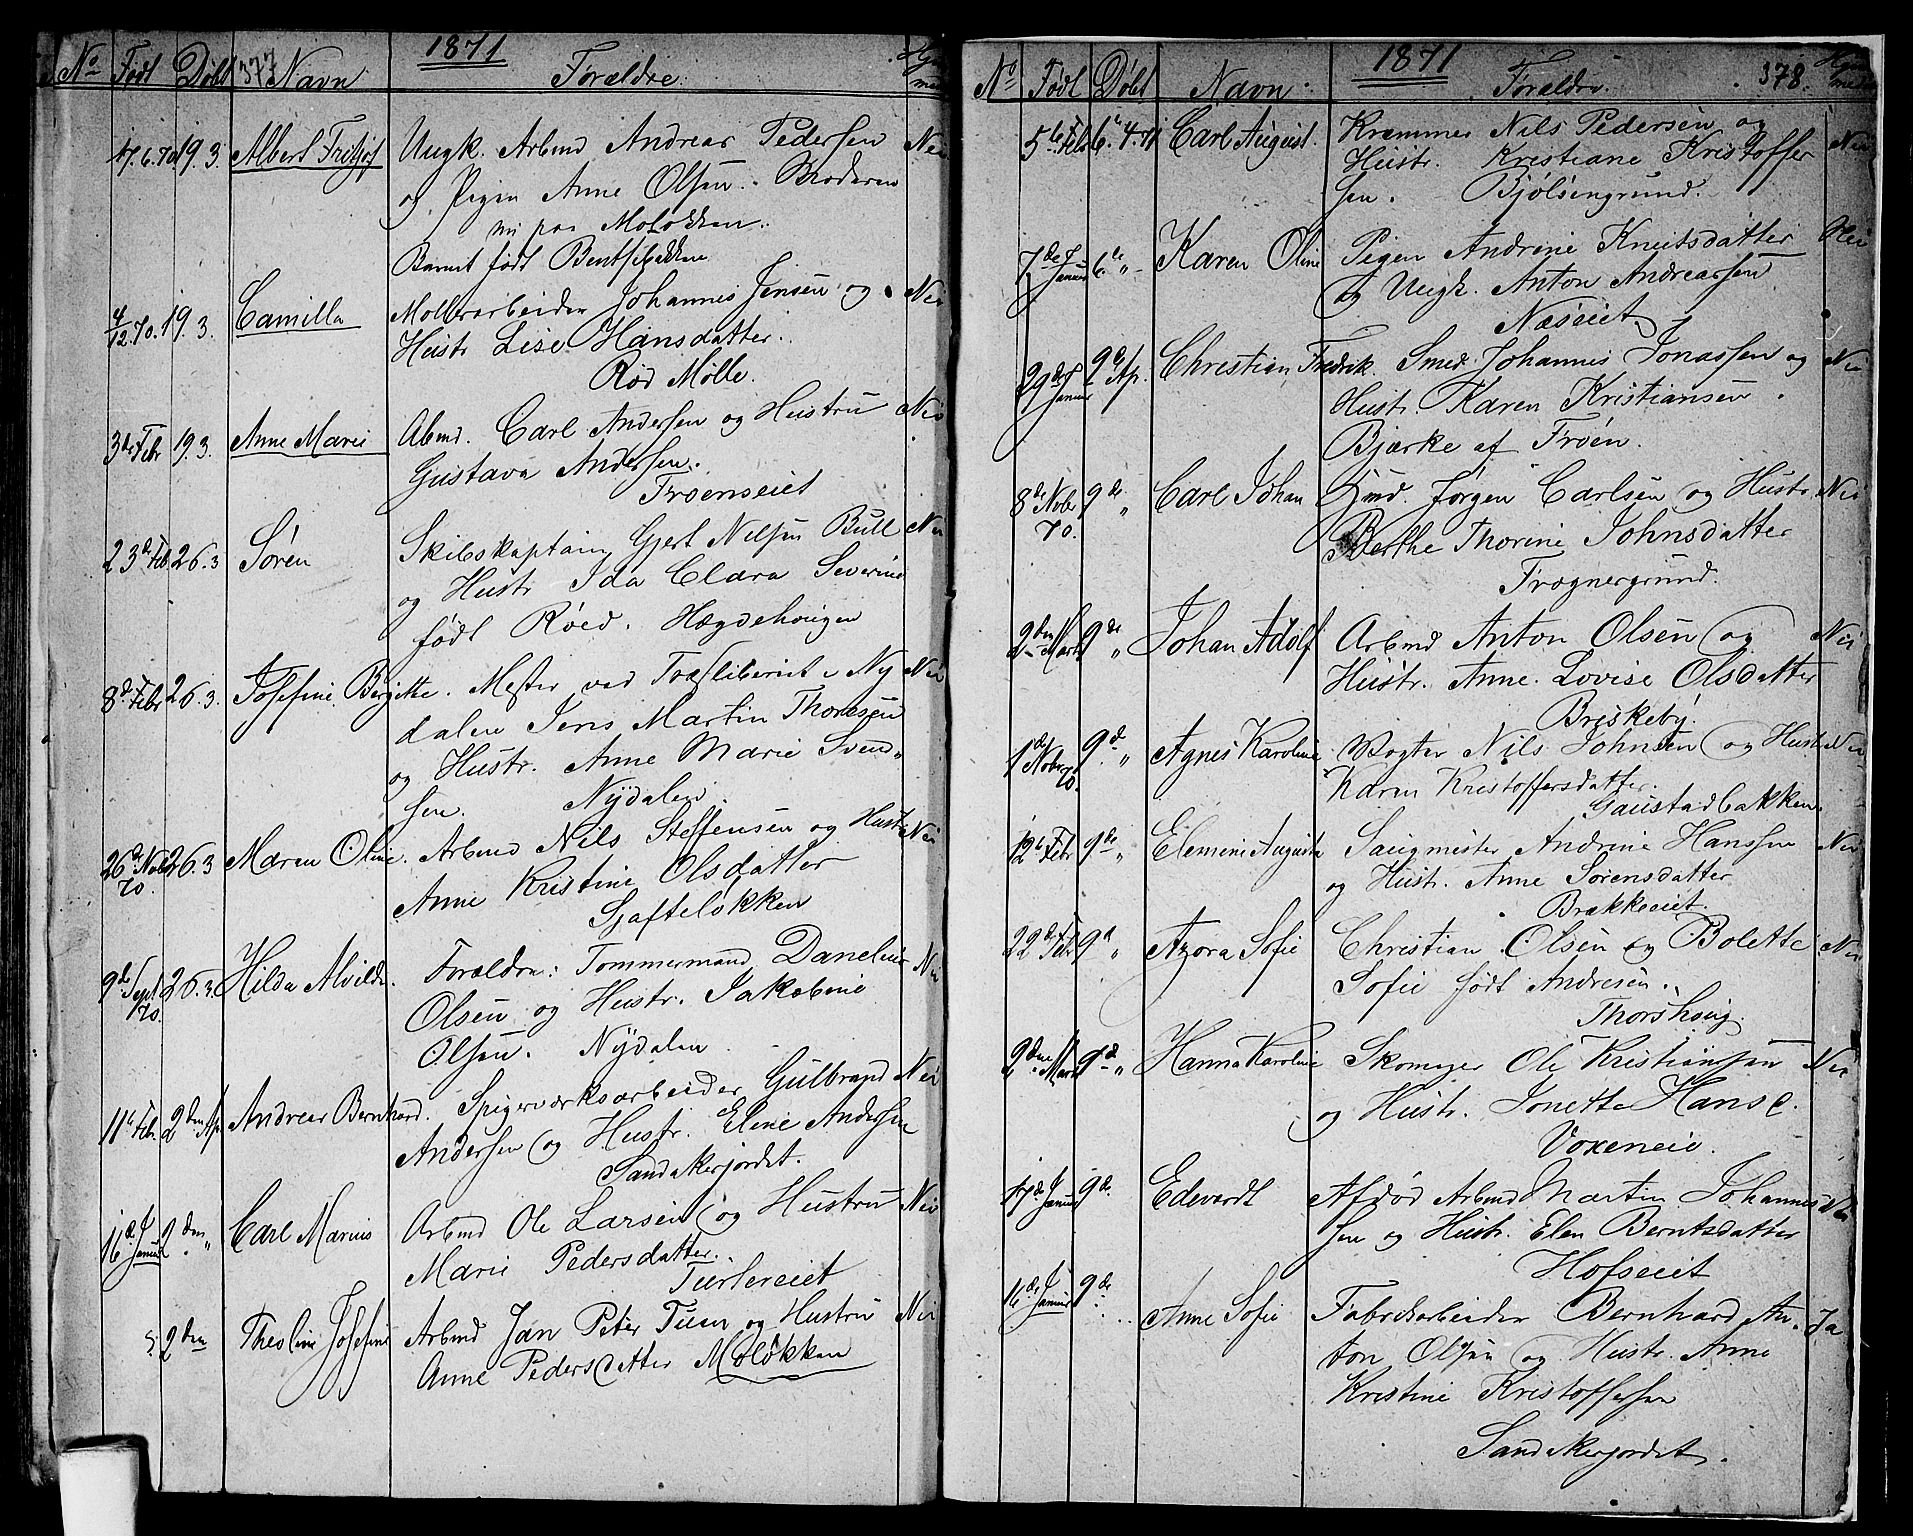 1871
No Født Døbt 377 Navn Forældre
17.6.70 19.3. Albert Fritjof Ungk. Arbmd Andreas Pedersen Nei
og Pigen Anne Olsen. Moderen
nu paa Moløkken.
Barnet født Bentsebakken
4/12.70. 19.3. Camilla Møllerarbeider Johannes Jensen og Nei
Hustr Lise Hansdatter.
Rød Mølle.
3de Febr 19.3. Anne Marie Abmd. Carl Andersen og Hustru Nei
Gustava Andersen.
Frøenseiet
23de Feb 26.3 Søren Skibskaptain Gjert Nilsen Bull Nei
og Hustr Ida Clara Severine
født Røed. Hægdehougen
8de Febr 26.3. Josefine Birgitte. Mester ved Træsliberiet i Ny Nei
dalen Jens Martin Thoresen
og Hustr. Anne Marie Svend„
sen. Nydalen.
26de Nobr 70. 26.3 Maren Oline. Arbmd Nils Steffensen og Hustr Nei
Anne Kristine Olsdatter
Sjafteløkken
9de Sept 70. 26.3. Hilda Alvilde. Forældre: Tømmermand Danelius Nei
Olsen og Hustr. Jakobine
Olsen. Nydalen
11te Febr. 2den Ap. Andreas Bernhard. Spigerværksarbeider Gulbrand Nei
Andersen og Hustr. Eline Andersen
Sandakerjordet.
16de Januar 2den „ Carl Marius Arbmd Ole Larsen og Hustru Nei
Marie Pedersdatter.
2den Josefine Arbmd Jan Peter og Hustru Nei
Anne Pedersdatter Moløkken
1871
No Født Døbt Navn Forældre 378.
5te Feb 6te 4.71 Carl August. Kræmmer Nils Pedersen og Nei
Hustr. Kristiane Kristoffer
sen. Bjølsengrund.
7de Januar 6te „ Karen Oline Pigen Andrine Knutsdatter Nei
og Ungk. Anton Andreassen
Næseiet
29de Januar 9de Ap. Christian Fredrik. Smed Johannes Jonassen og Nei
Hustr. Karen Kristiansen.
Bjerke af Frøen.
8de Nobr 70. 9de „ Carl Johan Gmd. Jørgen Carlsen og Hustr. Nei
Berthe Thorine Johnsdatter
Frognergrund.
2den Marts 9de „ Johan Adolf Arbmd Anton Olsen og Nei
Hustr. Anne Lovise Olsdatter
Briskeby.
1de Nobr 70. 9de „ Agnes Karoline Vogter Nils Johnsen og Hust Nei
Karen Kristoffersdatter.
Gaustadbakken.
12te Febr 9de „ Elemine Augusta Saugmester Andrine Hanssen Nei
og Hustr. Anne Sørensdatter
Brækkeeiet.
22de Febr 9de „ Azora Sofie Christian Olsen og Bolette Nei
Sofie født Andresen.
Thorshoug.
9den Marts 9de „ Hanna Karoline Skomager Ole Kristiansen Nei
og Hustr. Jonette Hans
Voxeneie.
17de Januar 9de. Edevardt Afdød Arbmd Martin Johannes Nei
sen og Hustr. Elen Berntsdatter
Hofseiet
16de Januar 9de. Anne Sofie Fabrikarbeider Bernhard An- Ja
ton Olsen og Hustr. Anne
Kristine Kristoffersen
Sandakerjordet.